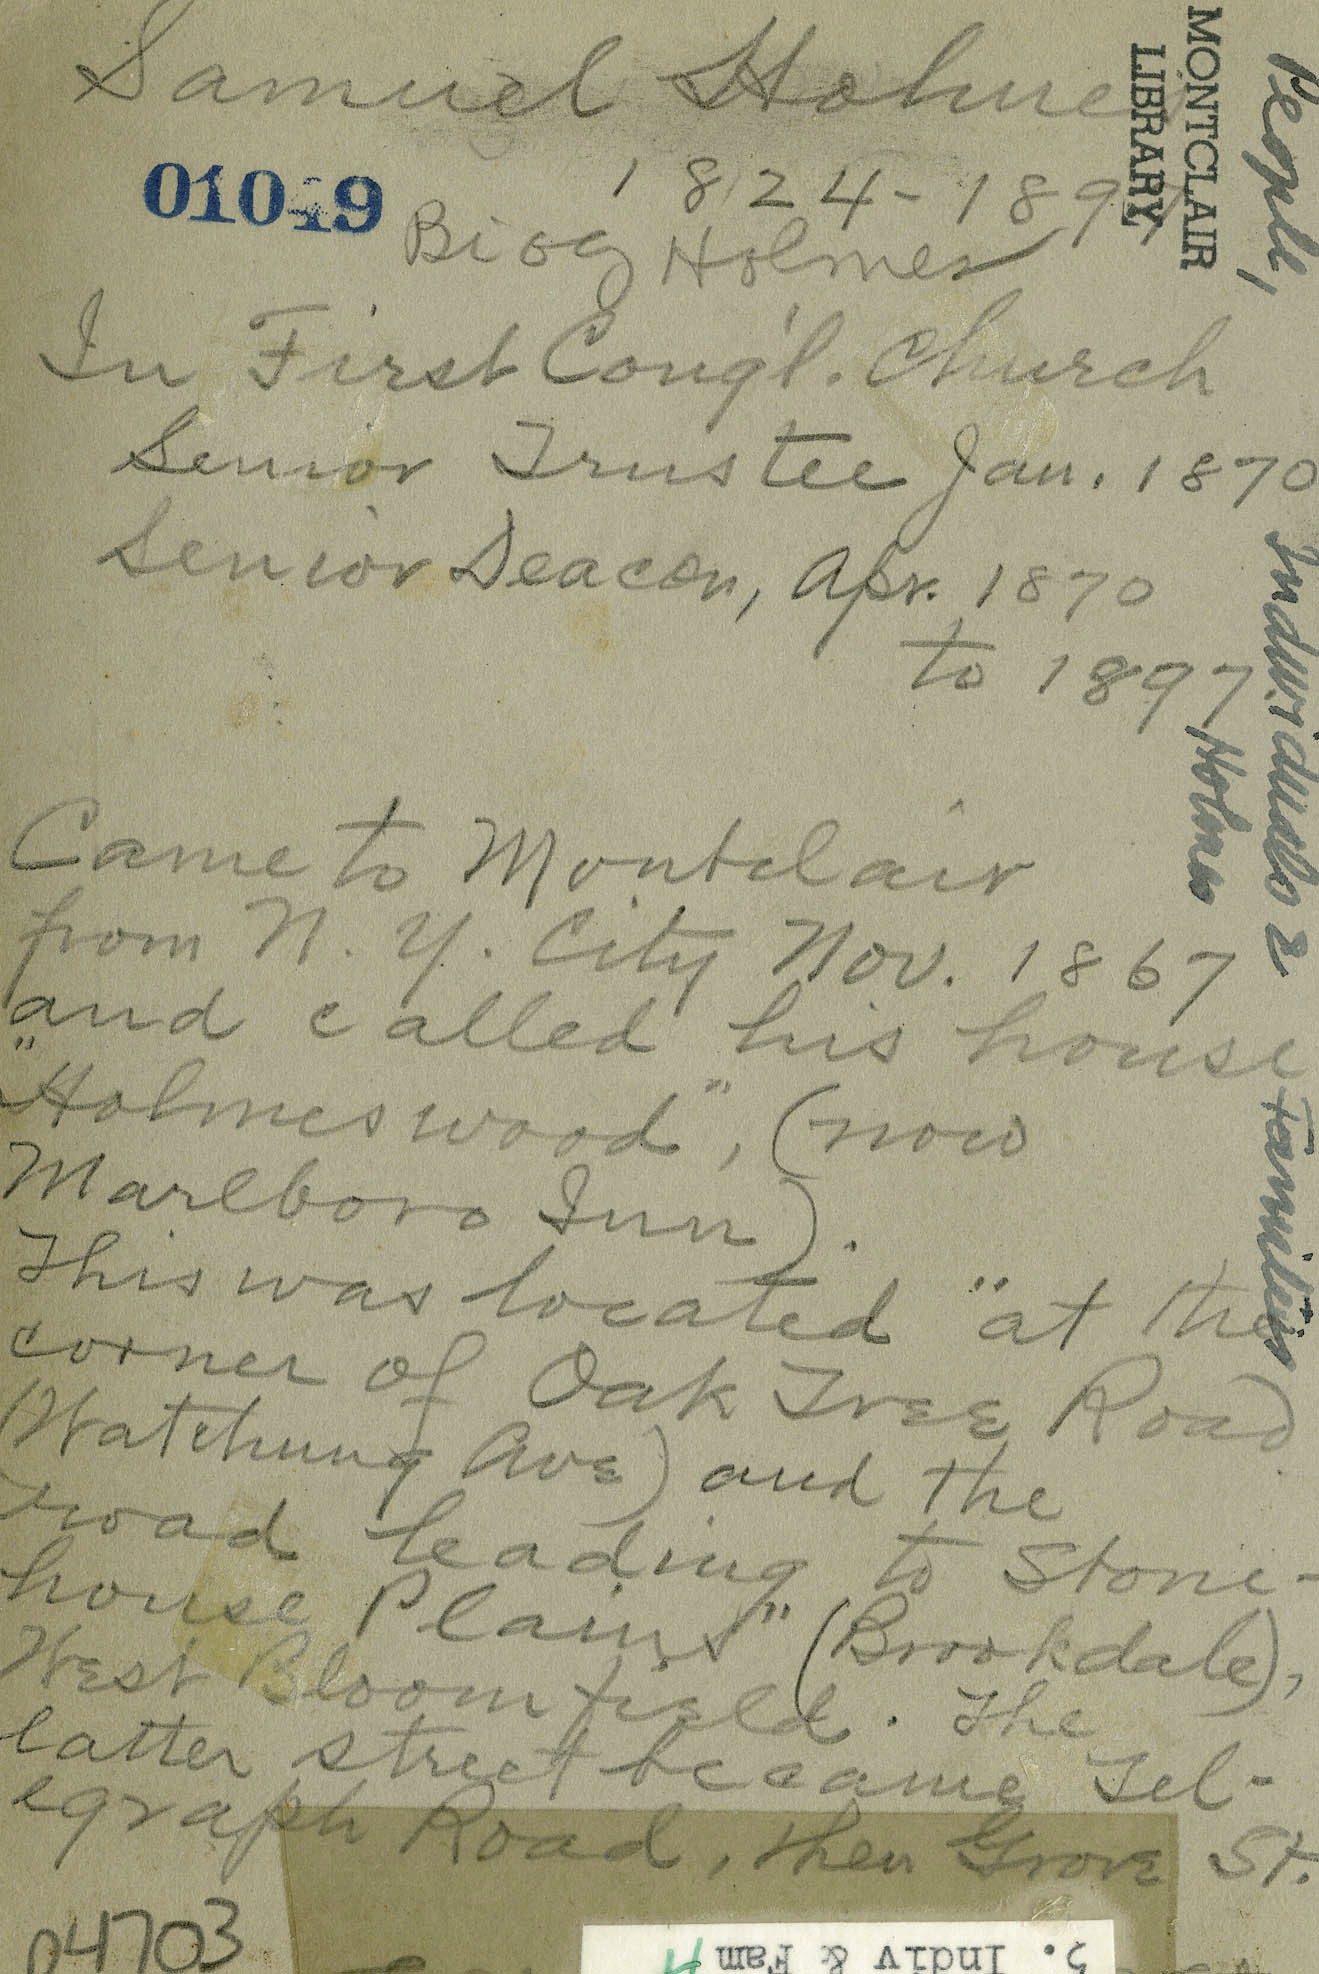 Samuel Holmes
1824-1897
01049
Biog Holmes
In First Cong'l. Church
Senior Trustee Jan. 1870
Senior Deacon, Apr. 1870
to 1897
Came to Montclair
from N. Y. City Nov. 1867
and called his house
"Holmeswood", (now
Marlboro Inn).
This was located "at the
corner of Oak Tree Road
(Watchung Ave) and the
road leading to Stone-
house Plains" (Brookdale),
West Bloomfield. The
latter street became Tel-
egraph Road, then Grove St.
04703
MONTCLAIR
LIBRARY
People,
Individuals & Families
Holmes
5. Indiv & Fam
H